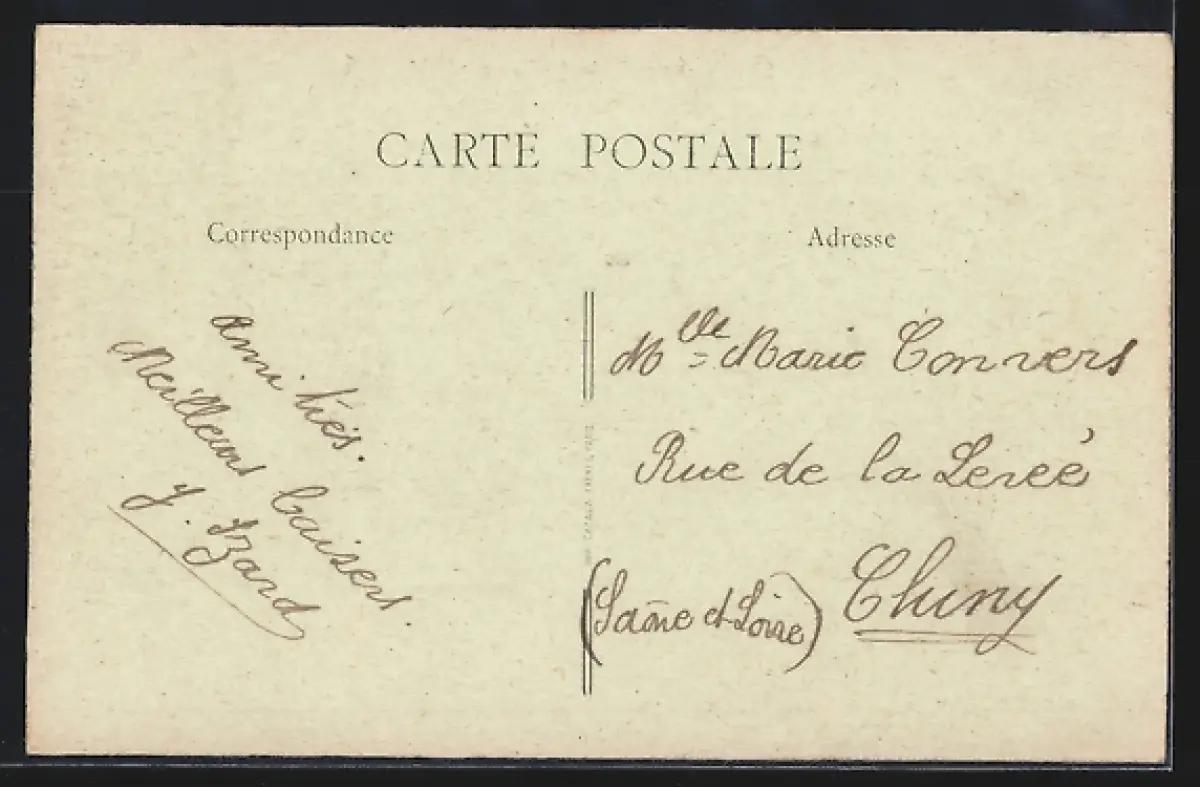 CARTE POSTALE
Correspondance
Amitiés.
Meilleurs baisers
Y. Izard
Adresse
Mlle Marie Convers
Rue de la Levée
Cluny
(Saône et Loire)